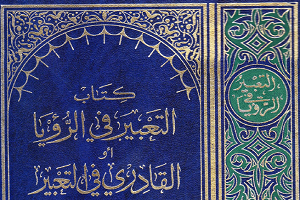 كتاب
التعبير في الرؤيا
أو
القادري في التعبير
التعبير
في
الرؤيا